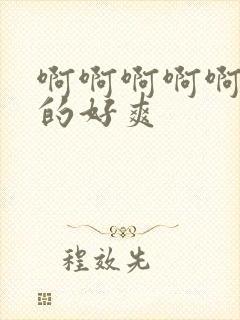 啊啊啊啊啊
的好爽
程效先